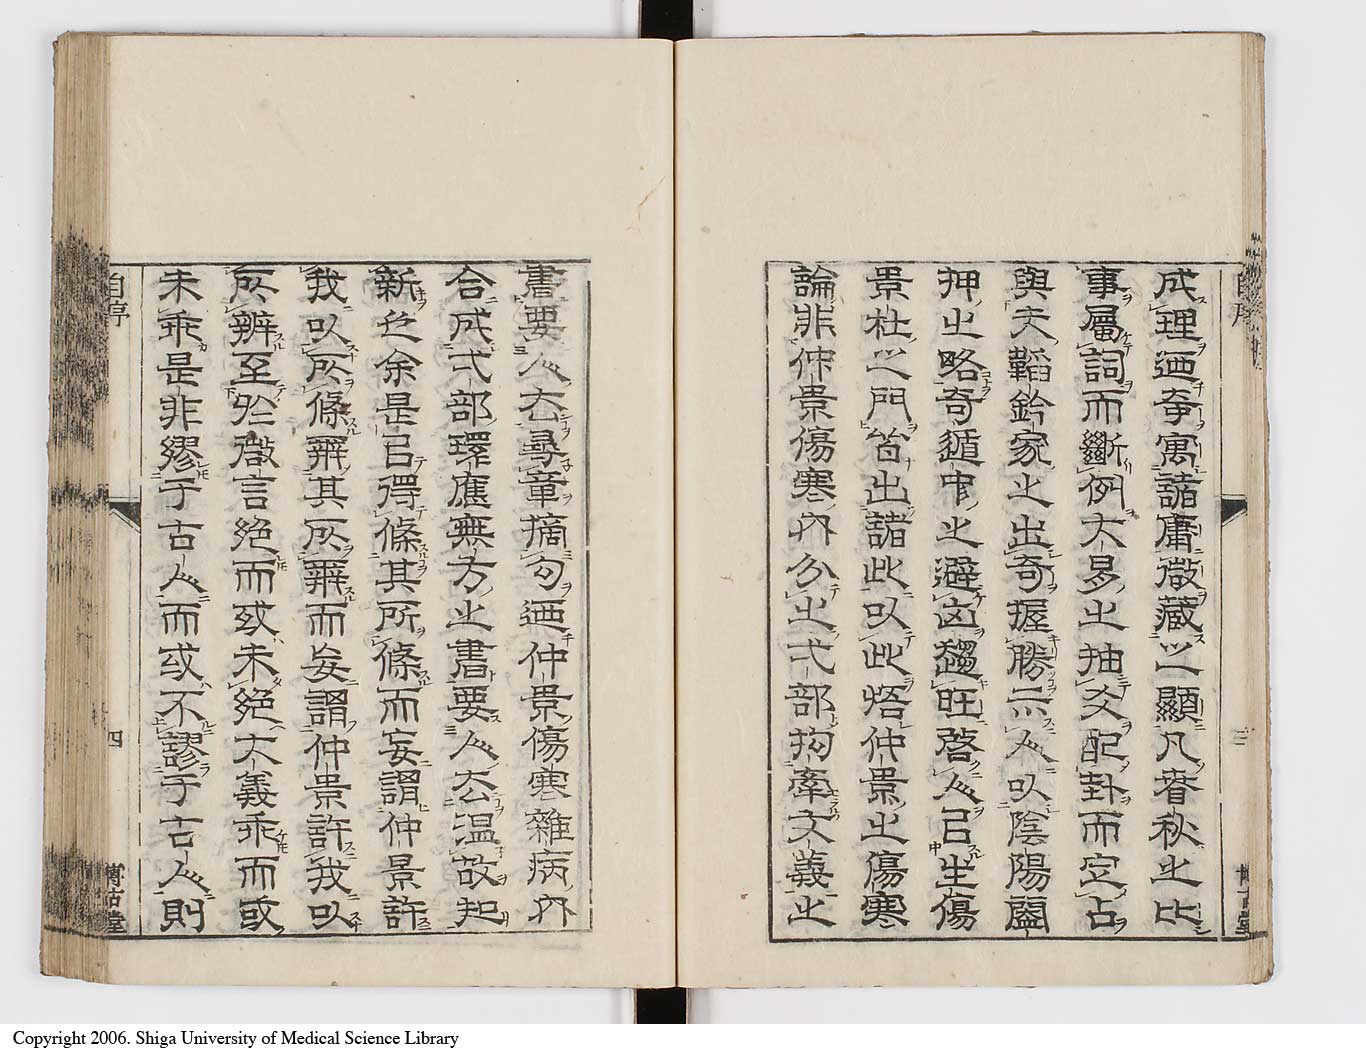 成理迺奇寓諸庸微藏之顯凡春秋之比
事屬詞而斷例大易之抽爻配卦而定占
與夫韜鈐家之出奇握勝示人以陰陽闔
押之略奇遁中之避凶趨旺啓人吕生傷
景杜之門皆出諸此以此悟仲景之傷寒
論非仲景傷寒內分之弌部拘牽文義之
書要人去尋章摘句迺仲景傷寒雜病內
合成弌部環應無方之書要人去溫故起
新之余是吕彁條其所條而妄謂仲景許
我以所條辨其所辨而妄謂仲景許我以
所辨至於微言絕而或未絕大義乖而或
未乖是非繆于古人而或不謬于古人則
自序
四
博古堂
自序
三
博古堂
Copyright 2006. Shiga University of Medical Science Library